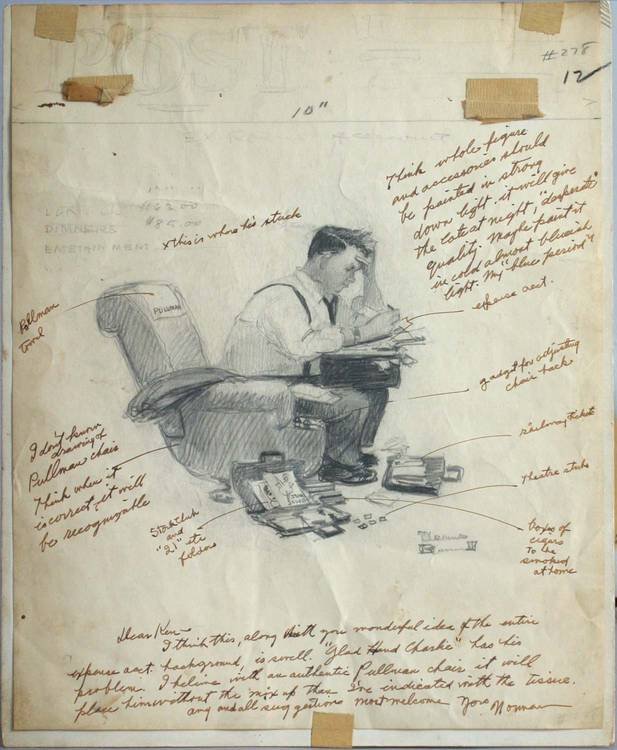 POST
#278
12
10"
$85.00
ENTERTAINMENT
x this is where he's stuck
Think whole figure
and accessories should
be painted in strong
down light it will give
the late at night, "desperate"
quality. Maybe paint it
in cold almost blueish
light. My "blue period"?
expense acct.
Pullman
towel
PULLMAN
gadget for adjusting
chair back
I don't know
drawing of
Pullman chair
Think when it
is correct, it will
be recognizable
railway tickets
theatre stubs
Stork Club
and
"21" etc
folders
boxes of
cigars
to be
smoked
at home
Norman
Rockwell
Dear Ken-
I think this, along with you wonderful idea of the entire
expense acct. background, is swell. "Glad Hand Charlie" has his
problem. I believe with an authentic Pullman chair it will
place him without the mix up than I've indicated with the tissue.
any and all suggestions most welcome Yours Norman